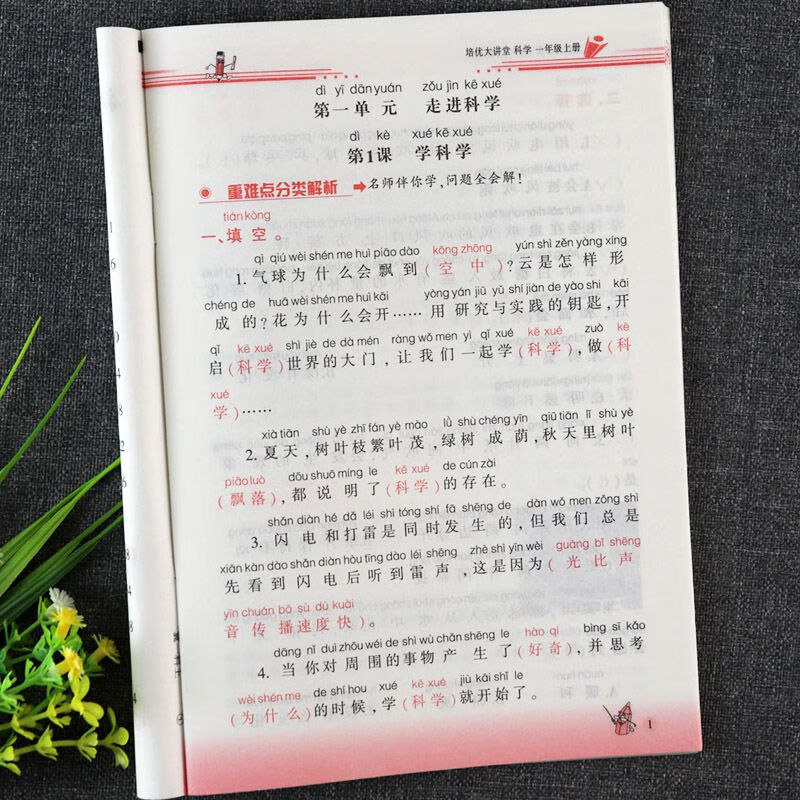 培优大讲堂 科学 一年级上册
dì yī dānyuán zǒu jìn kē xué
第一单元 走进科学
dì kè xué kē xué
第1课 学科学
重难点分类解析 名师伴你学,问题全会解!
tián kòng
一、填空。
qì qiú wèi shén me huì piāo dào kōng zhōng yún shì zěn yàng xíng
1.气球为什么会飘到(空中)?云是怎样形
chéng de huā wèi shén me huì kāi yòng yán jiū yǔ shí jiàn de yào shi kāi
成的?花为什么会开……用研究与实践的钥匙,开
qǐ kē xué shì jiè de dà mén ràng wǒ men yì qǐ xué kē xué zuò kē
启(科学)世界的大门,让我们一起学(科学),做(科
xué
学)……
xià tiān shù yè zhī fán yè mào lǜ shù chéng yīn qiū tiān lǐ shù yè
2.夏天,树叶枝繁叶茂,绿树成荫,秋天里树叶
piāo luò dōu shuō míng le kē xué de cún zài
(飘落),都说明了(科学)的存在。
shǎn diàn hé dǎ léi shì tóng shí fā shēng de dàn wǒ men zǒng shì
3.闪电和打雷是同时发生的,但我们总是
xiān kàn dào shǎn diàn hòu tīng dào léi shēng zhè shì yīn wèi guāng bǐ shēng
先看到闪电后听到雷声,这是因为(光比声
yīn chuán bō sù dù kuài
音传播速度快)。
dāng nǐ duì zhōu wéi de shì wù chǎn shēng le hào qí bìng sī kǎo
4.当你对周围的事物产生了(好奇),并思考
wèi shén me de shí hou xué kē xué jiù kāi shǐ le
(为什么)的时候,学(科学)就开始了。
1